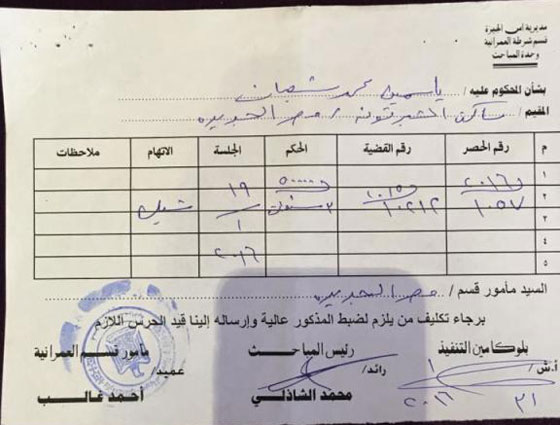 مديرية امن الجيزة
قسم شرطة العمرانية
وحدة المباحث
بشأن المحكوم عليه / ياسمين محمد شعبان
المقيم / ساكن الشيراتونه / مصر الجديده
م رقم الحصر رقم القضية الحكم الجلسة الاتهام ملاحظات
١ ٥٠٠٠٠ ١٩
٢ ١٠٥٧ ١٠٢١٢ ٣ سنوات شيك
٣ ١
٤ ٢٠١٦
٥
السيد مأمور قسم / مصر الجديده
برجاء تكليف من يلزم لضبط المذكور عالية وإرساله إلينا قيد الحرس اللازم
بلوكامين التنفيذ رئيس المباحث مأمور قسم العمرانية
أ.ش / رائد / عميد /
محمد الشاذلي أحمد غالب